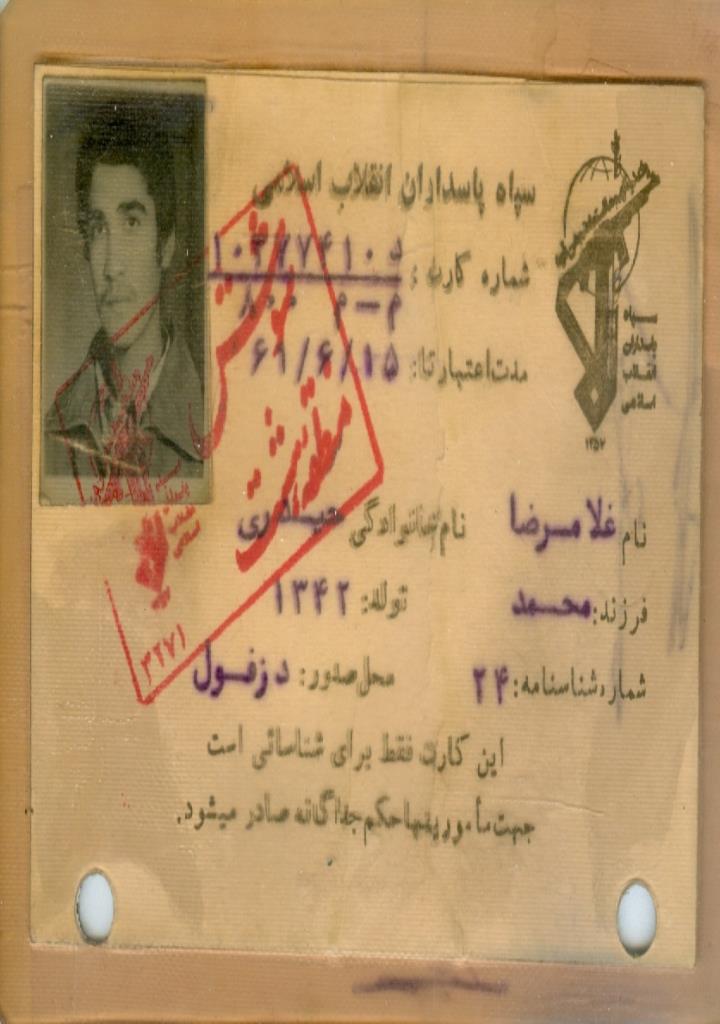 سپاه پاسداران انقلاب اسلامی
شماره کارت :
م - م ۸۰۰
مدت اعتبار تا: ۶۱/۶/۱۵
سپاه
پاسداران
انقلاب
اسلامی
۱۳۵۷
منطقه هشت
نام غلامرضا نام خانوادگی حیدری
فرزند: محمد تولد: ۱۳۴۲
شماره شناسنامه: ۲۴ محل صدور: دزفول
۳۲۷۱
این کارت فقط برای شناسائی است
جهت مأموریتها حکم جداگانه صادر میشود.